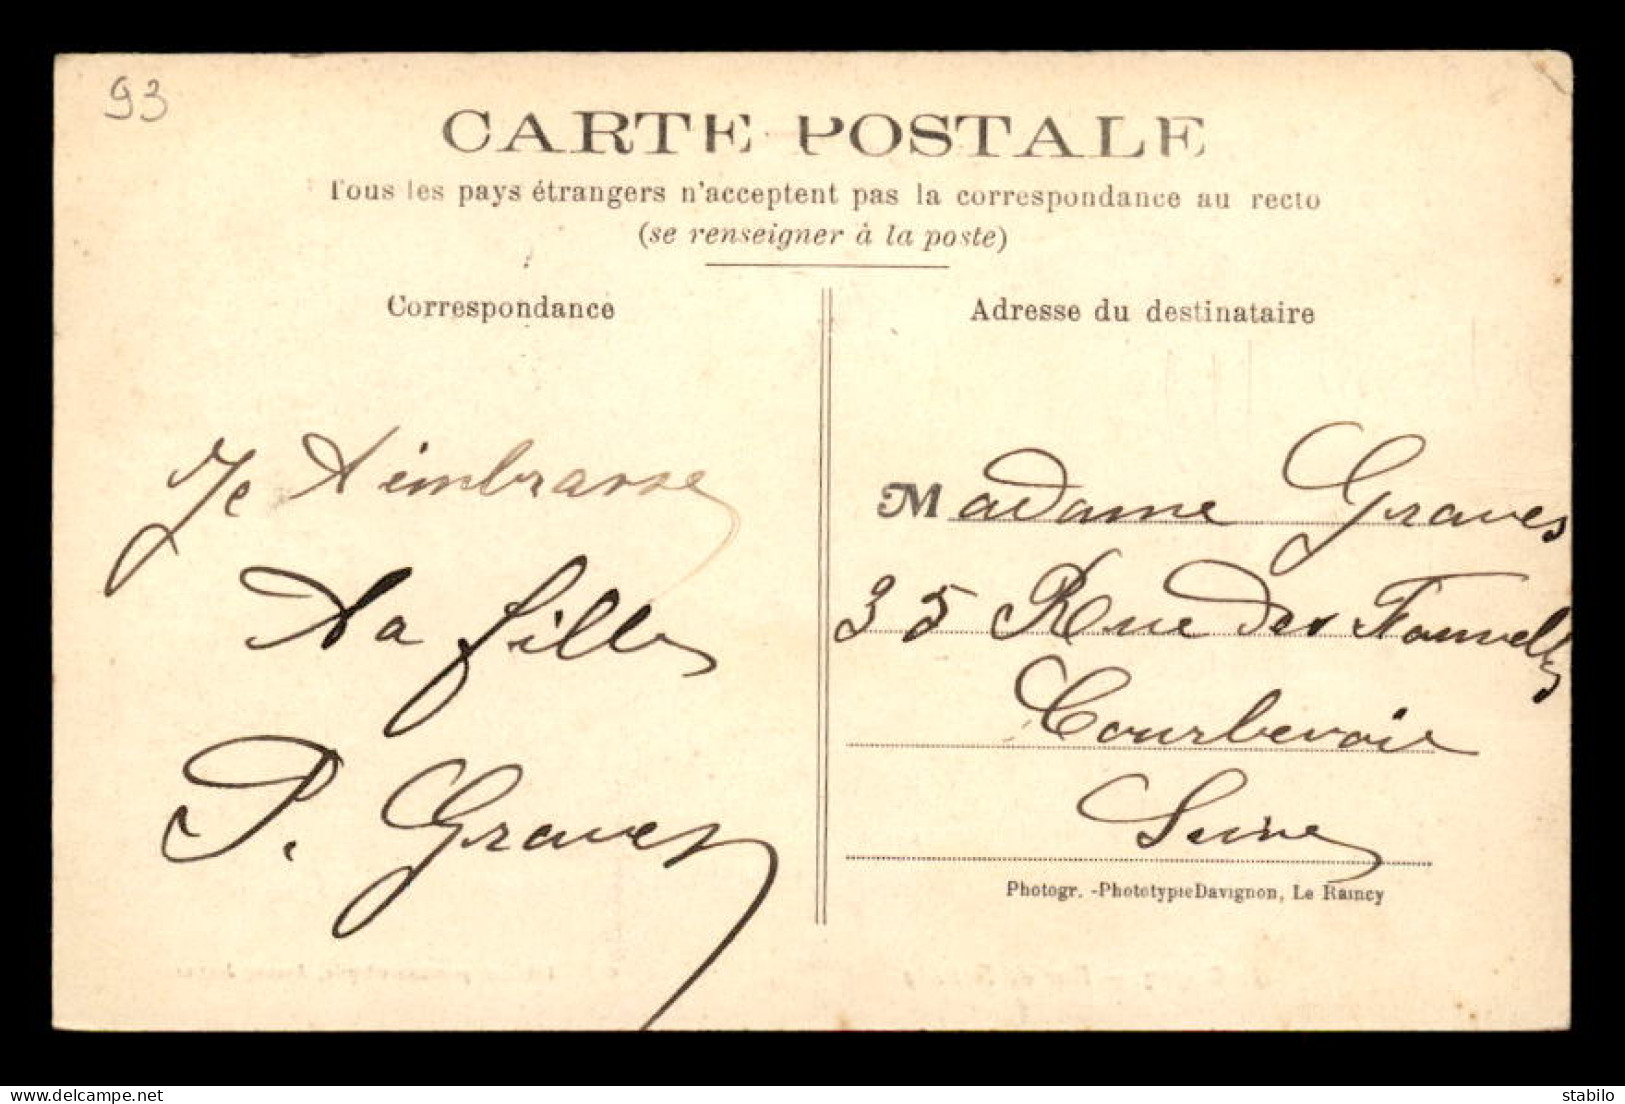 93
CARTE POSTALE
Tous les pays étrangers n'acceptent pas la correspondance au recto
(se renseigner à la poste)
Correspondance
Je t'embrasse
ta fille
P. Graves
Adresse du destinataire
Madame Graves
35 Rue des Fauvelles
Courbevoie
Seine
Photogr. -Phototypie Davignon, Le Raincy
delcampe.net
stabilo